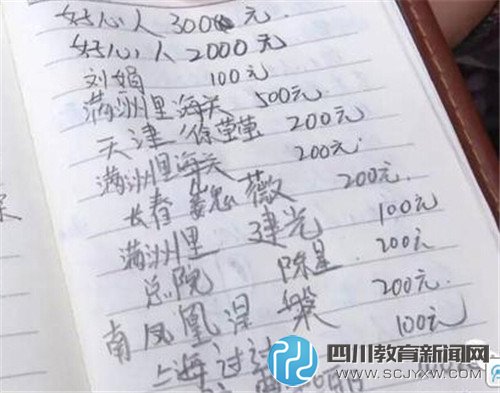 好心人 300元
好心人 2000元
刘娟 100元
满洲里海关 500元
天津 徐莹莹 200元
满洲里海关 200元
长春 魏薇 200元
满洲里 建光 100元
总院 陈星 200元
南凤凰涅槃 200元
上海过过 100元
四川教育新闻网
WWW.SCJYXW.COM